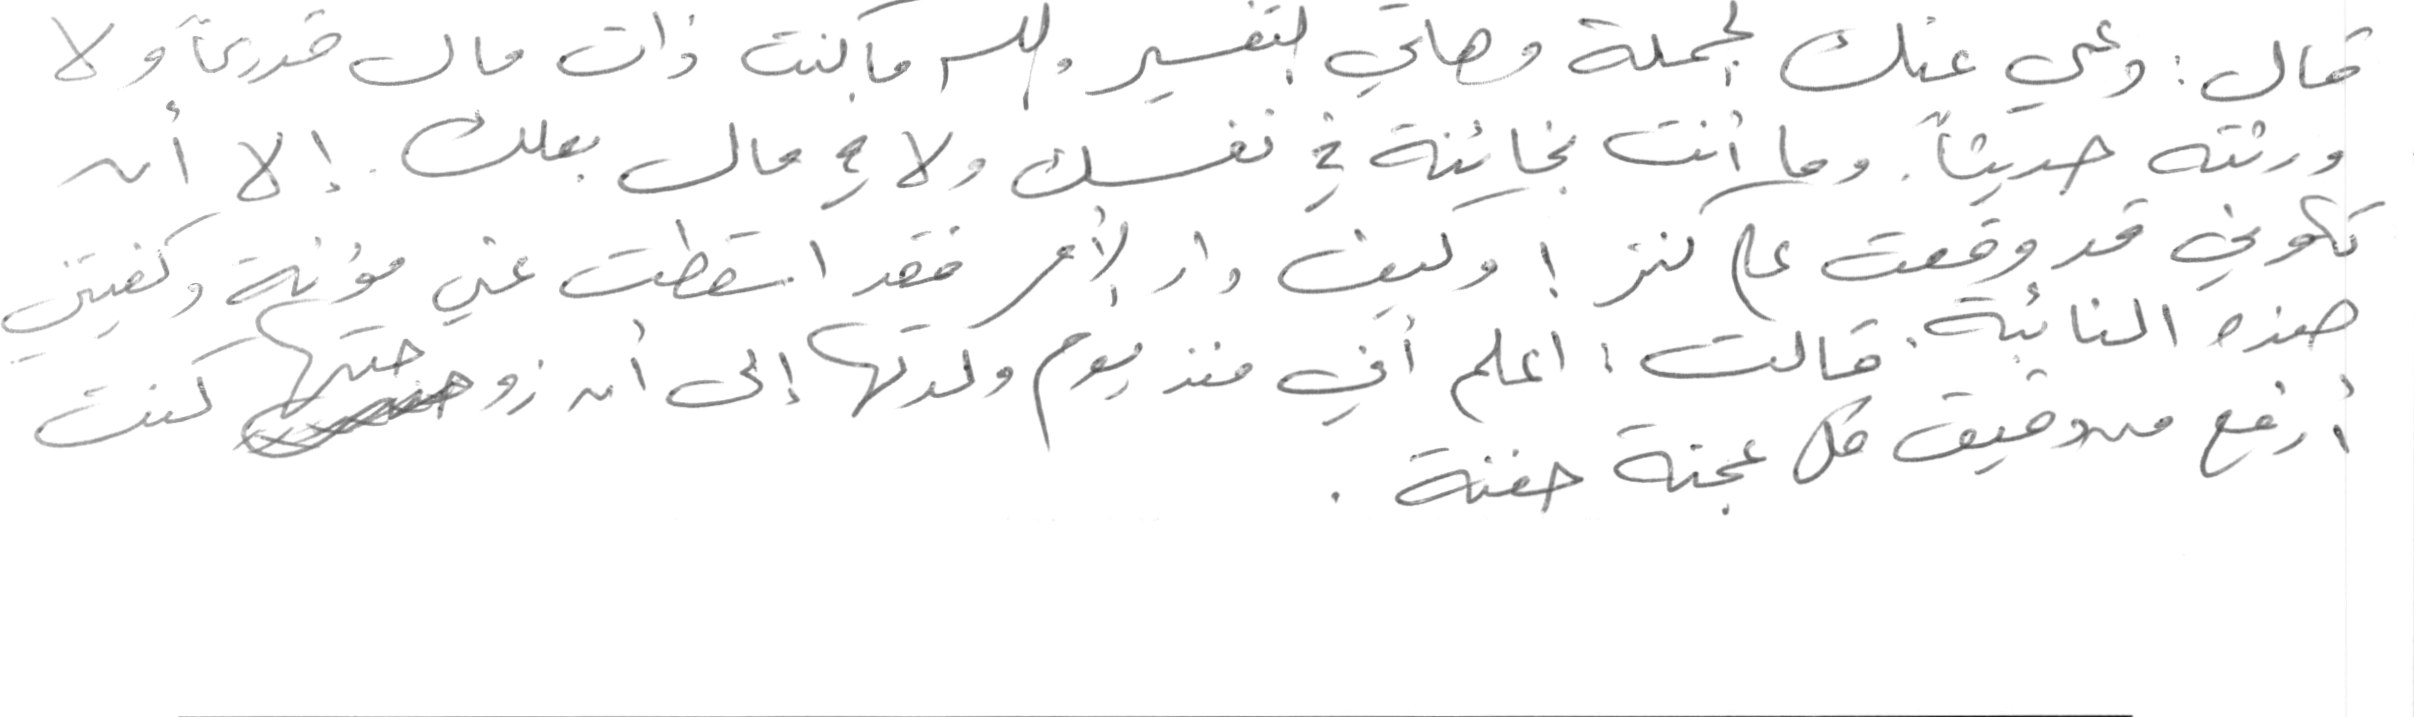 قال: دعي عنك الجملة وهاتي التفسير والله ما كنت ذات مال قديماً ولا
ورثته حديثاً. وما أنت بخائنة في نفسك ولا في مال بعلك. إلا أن
تكوني قد وقعت على كنز! وكيف دار الأمر فقد اسقطت عني مؤنة وكفيتني
هذه النائبة. قالت: اعلم أني منذ يوم ولدتها إلى أن زوجتها كنت
أرفع من دقيق كل عجنة حفنة.